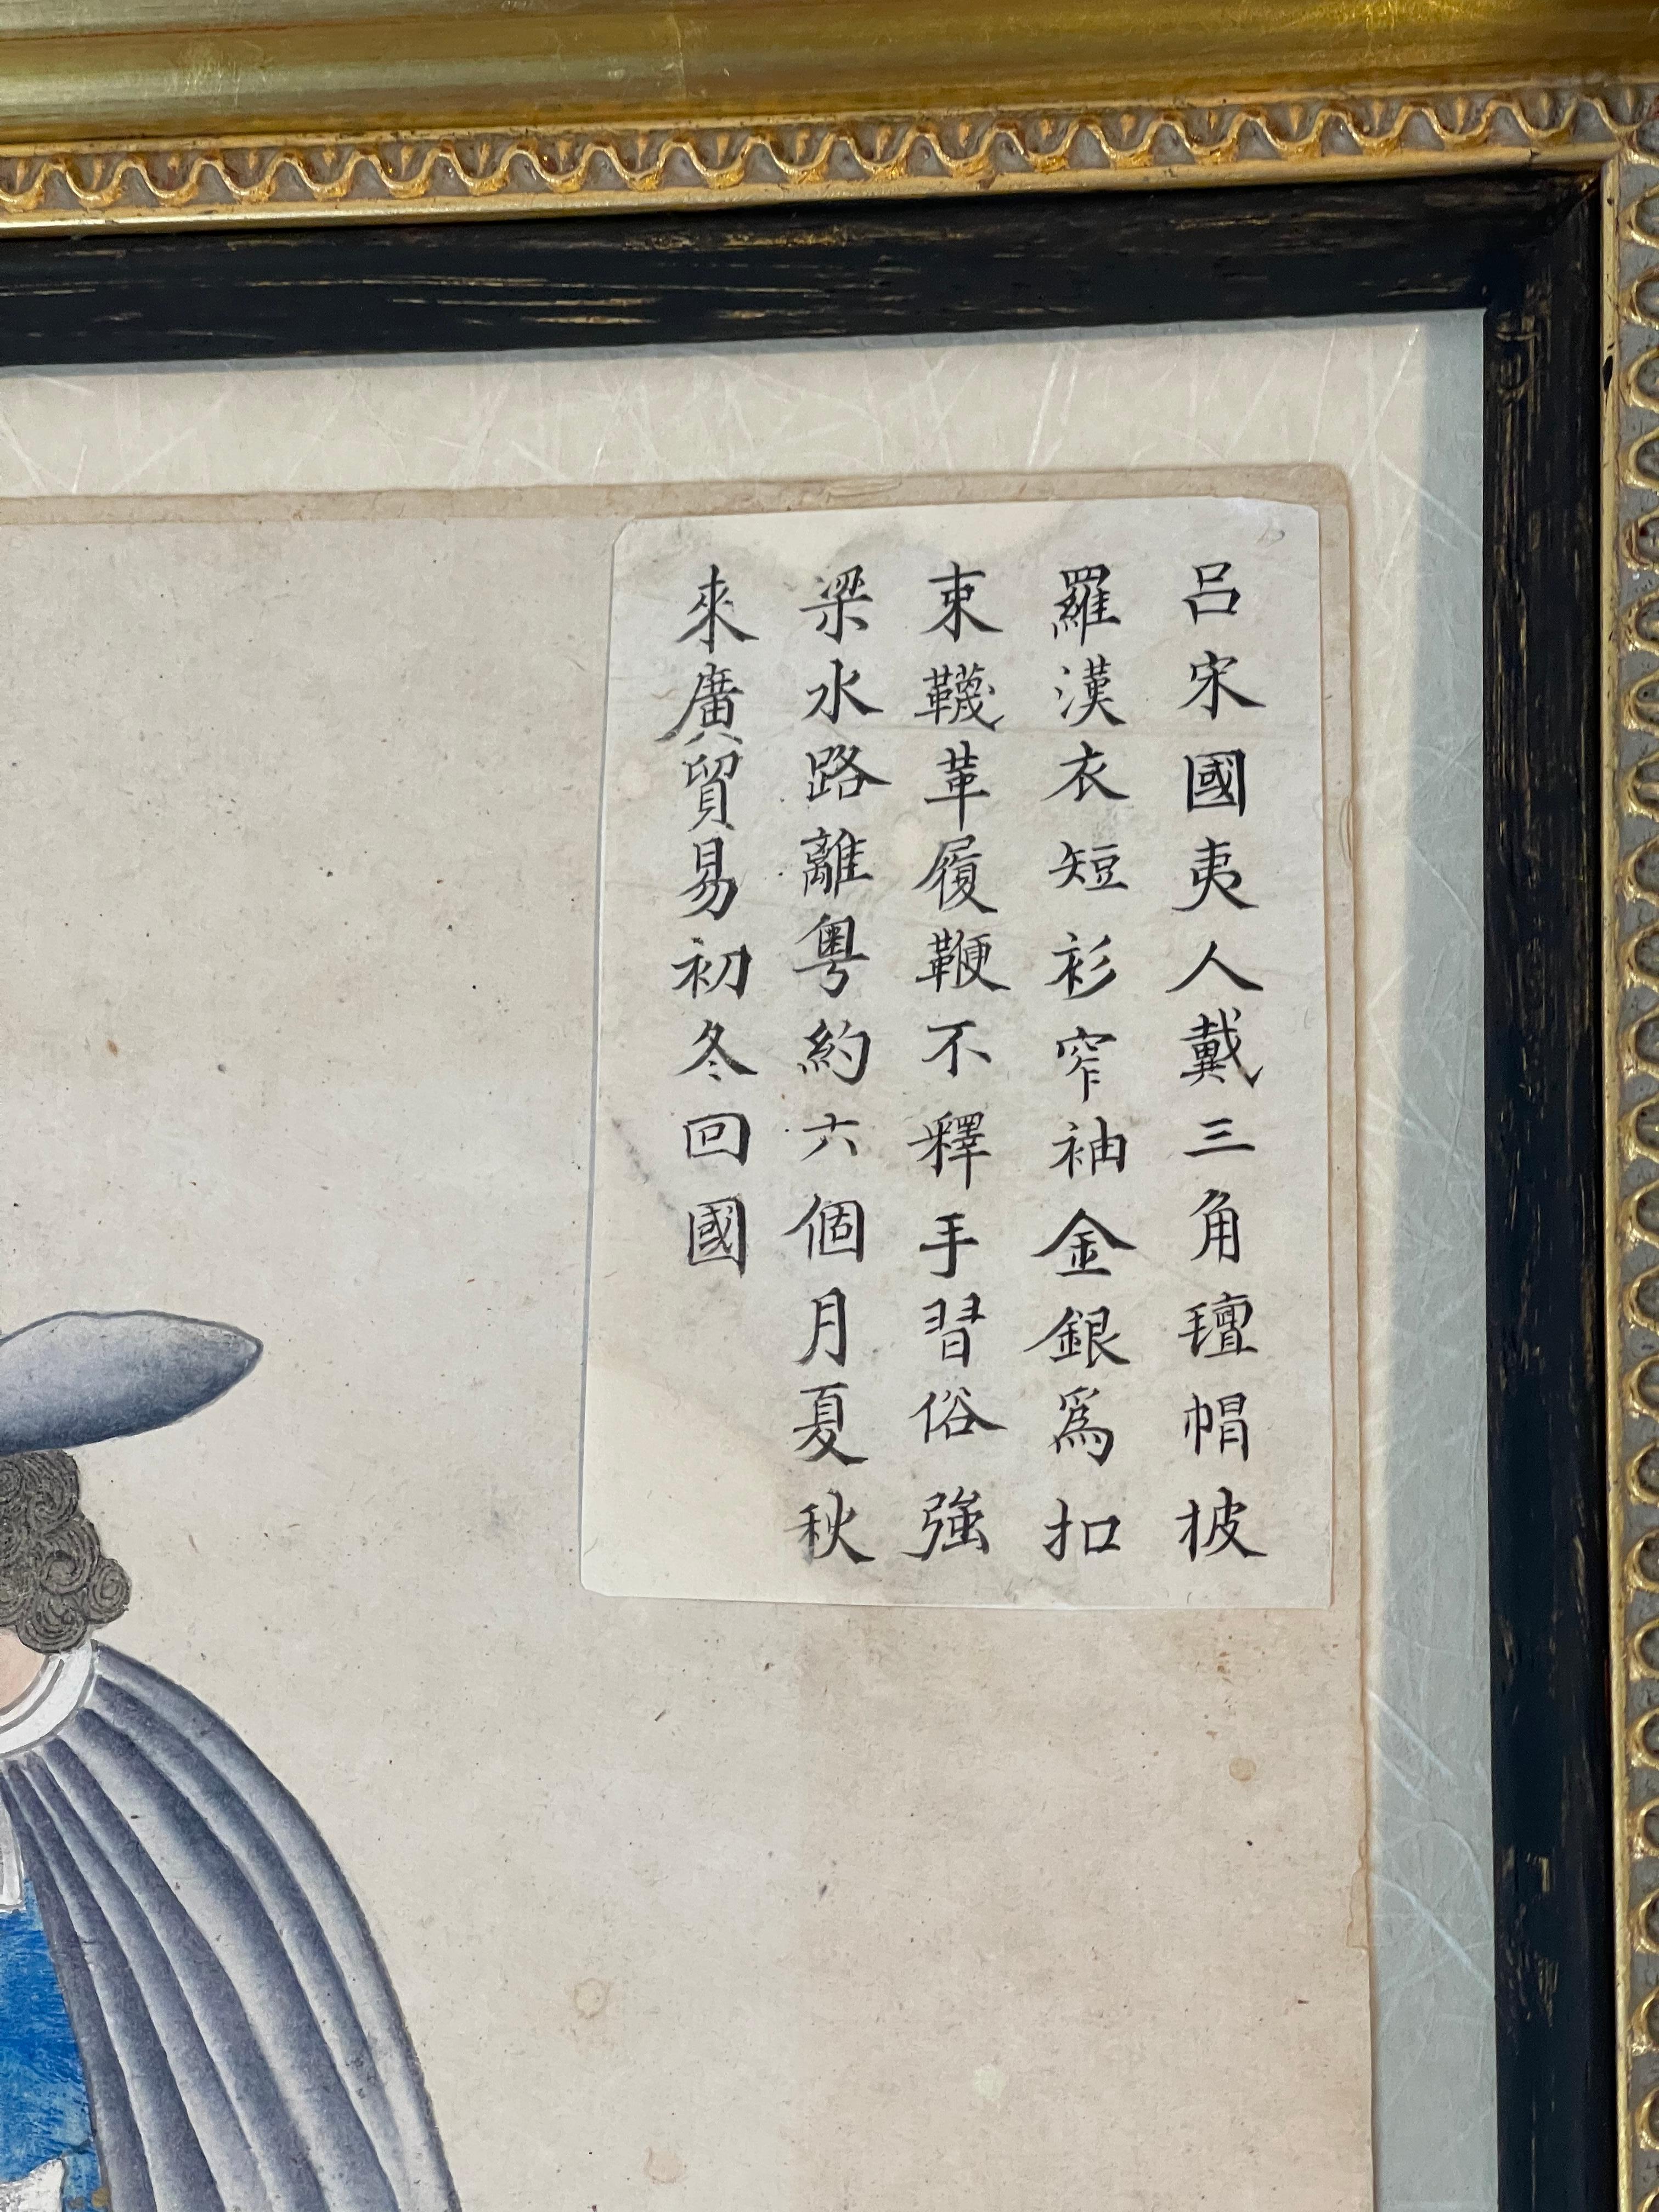 呂宋國夷人戴三角氊帽披
羅漢衣短衫窄袖金銀爲扣
束韈革履鞭不釋手習俗強
梁水路離粵約六個月夏秋
來廣貿易初冬回國